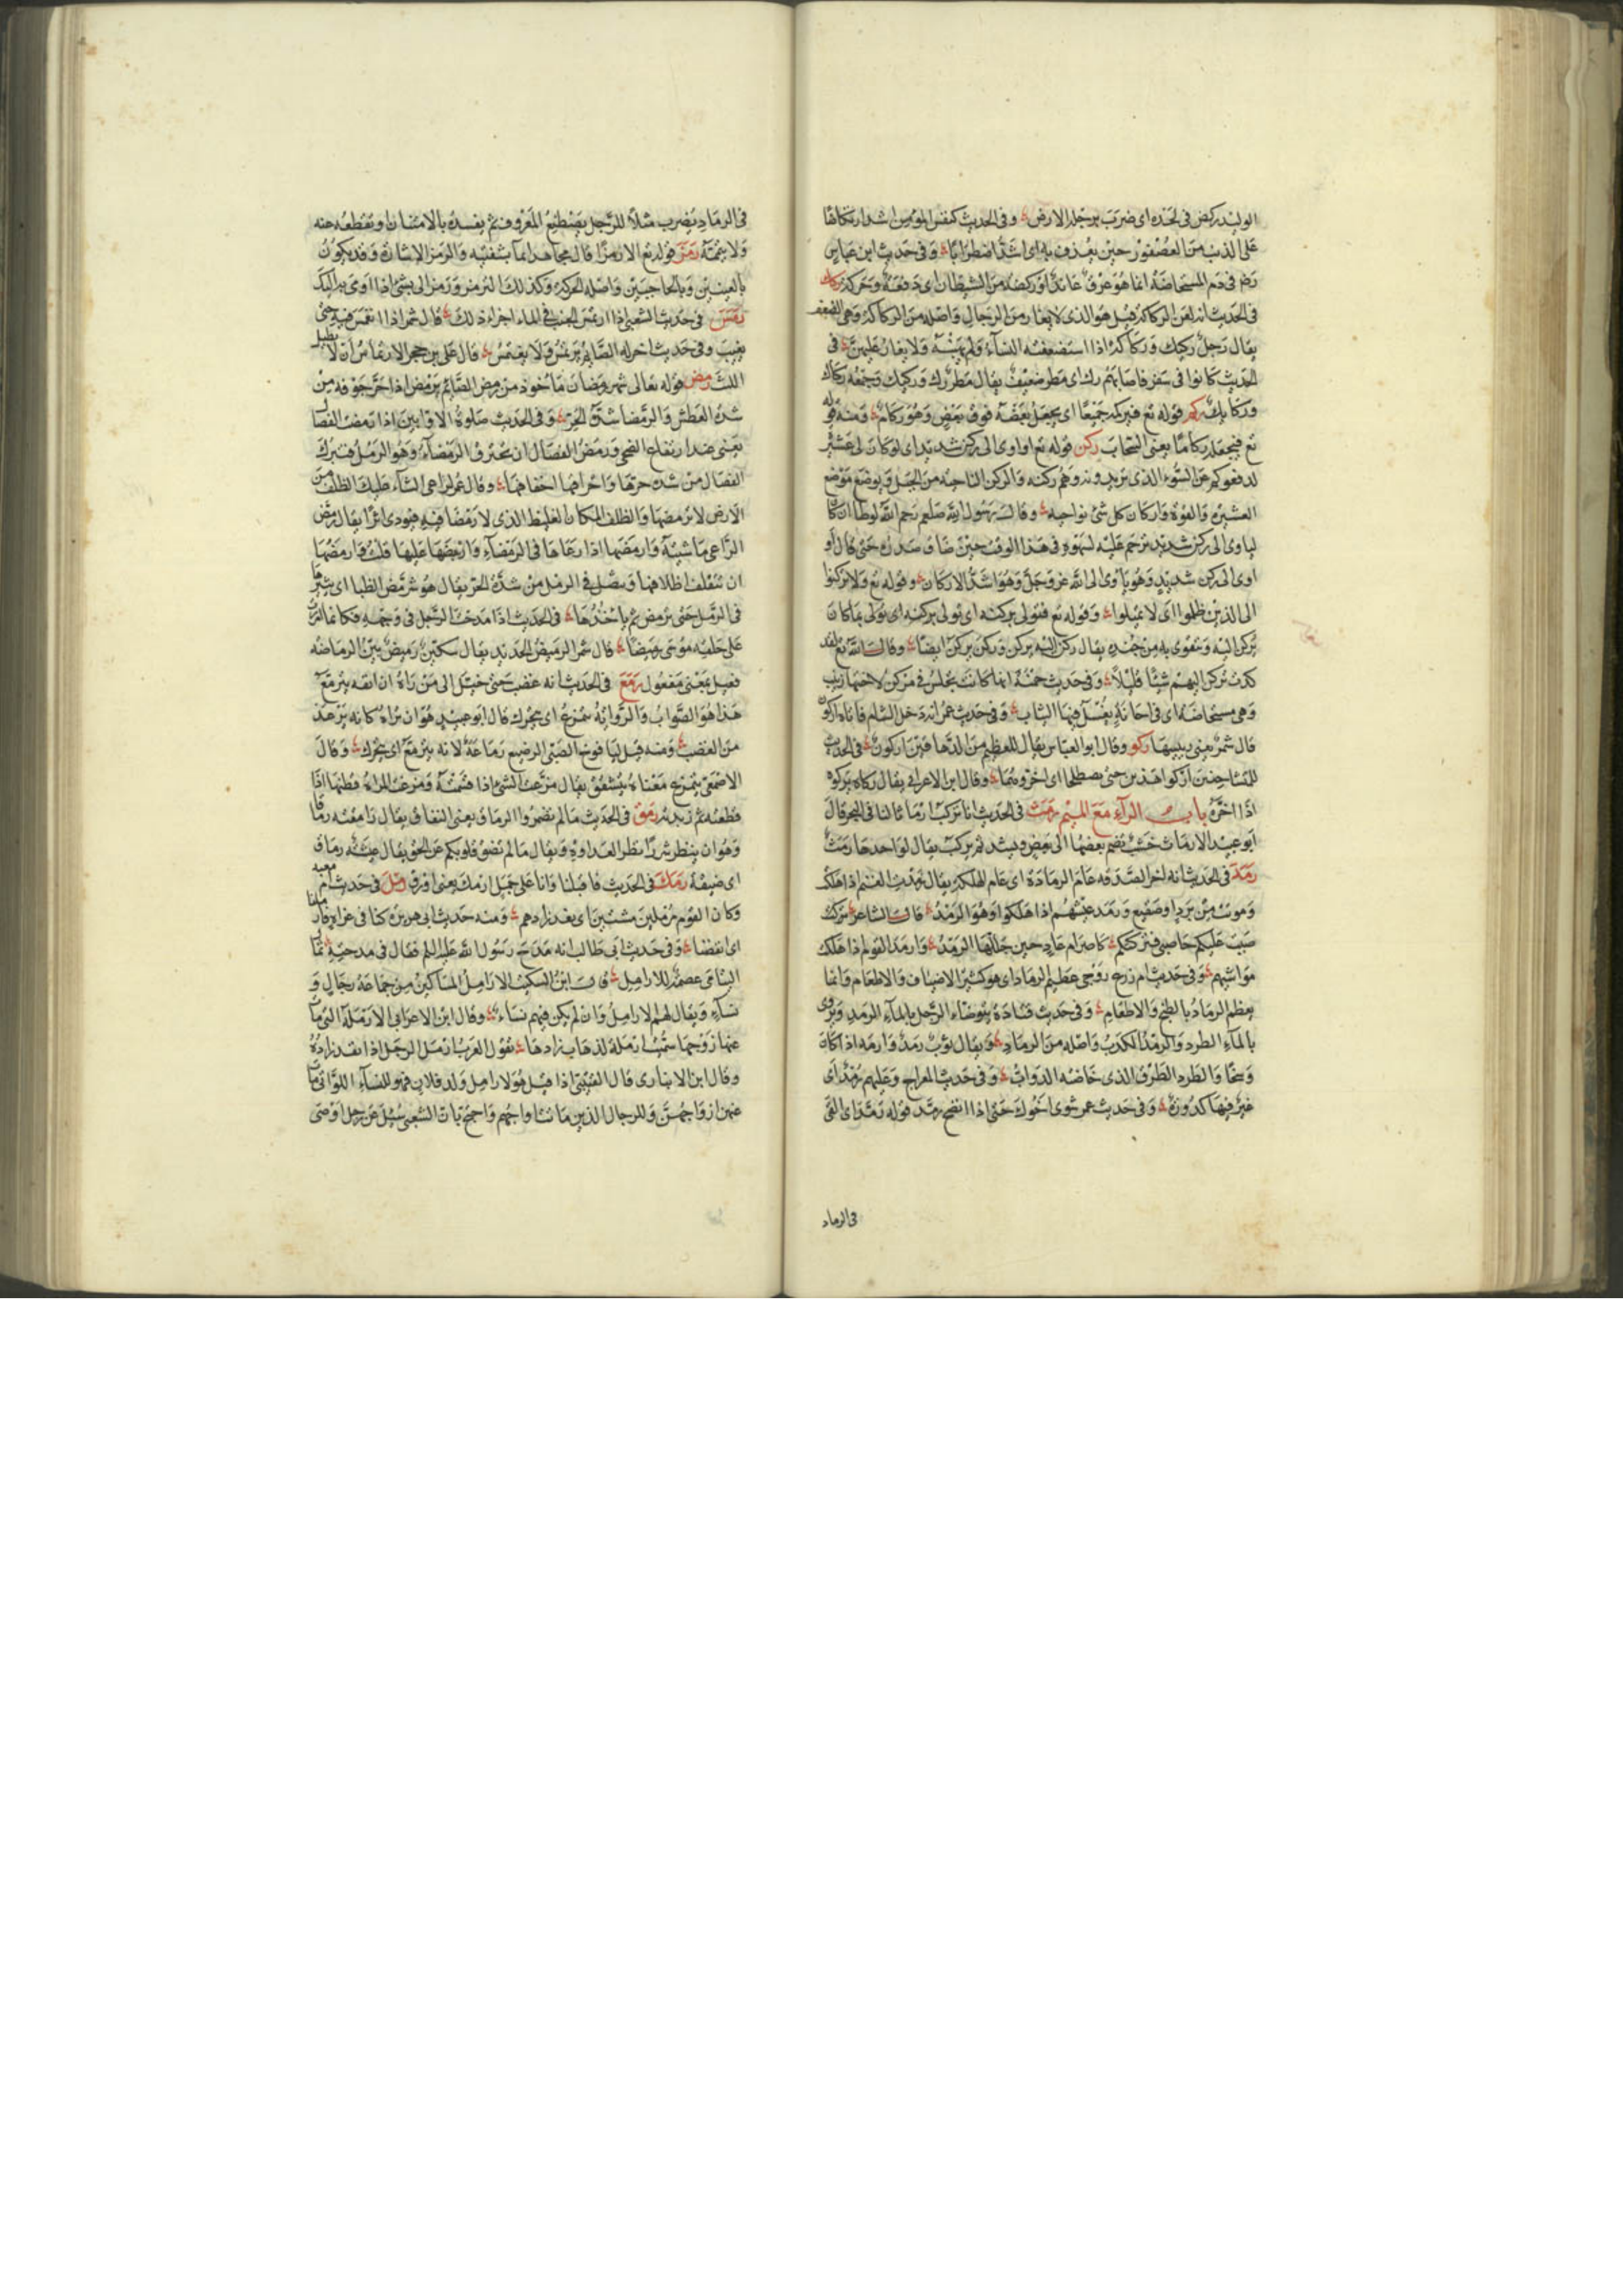 الوليد ركض فى لحده اى ضرب برجله الارض وفى الحديث لنفس المؤمن اشد ارتكاضا
على الذنب من العصفور حين يغدف به اى اشد اضطرابا وفى حديث ابن عباس
رضه فى دم المستحاضة انما هو عرق عاند او ركضة من الشيطان اى دفعة وحركة ركك
فى الحديث انه لعن الركاكة قيل هو الذى لا يغار من الرجال واصله من الركاكة وهى الضعف
يقال رجل ركيك وركاكة اذا استضعفته النساء ولم يهبنه ولا يغار عليهن فى
الحديث كانوا فى سفر فاصابهم رك اى مطر ضعيف يقال مطر رك وركيك وجمعه ركاك
وركايك ركم قوله تع فيركمه جميعا اى يجعل بعضه فوق بعض وهو ركام ومنه قوله
تع فيجعله ركاما يعنى السحاب ركن قوله تع او اوى الى ركن شديد اى لو كان لى عشيرة
لدفعوكم عن السوء الذى تريدونه وهم ركنه والركن الناحية من الجبل ويوضع موضع
العشيرة والقوة واركان كل شئ نواحيه وقال رسول الله صلعم رحم الله لوطا ان كان
لياوى الى ركن شديد ترحم عليه لسهوه فى هذا الوقت حين ضاق صدره حتى قال او
اوى الى ركن شديد وهو ياوى الى الله عز وجل وهو اشد الاركان وقوله تع ولا تركنوا
الى الذين ظلموا اى لا تميلوا وقوله تع فتولى بركنه اى تولى بركنه اى تولى بما كان
يركن اليه ويتقوى به من جنده يقال ركن اليه يركن وركن يركن ايضا وقال الله تع لقد
كدت تركن اليهم شيئا قليلا وفى حديث حمنة انها كانت تجلس فى مركن لاختها زينب
وهى مستحاضة اى فى اجانة يغسل فيها الثياب وفى حديث عمر انه دخل الشام فاتاه اركون
قال شمر يعنى رييسها ركو وقال ابو العباس يقال للعظيم من الدهاقين اركون فى الحديث
للمتشاحنين اركوا هذين حتى يصطلحا اى اخروهما وقال ابن الاعرابى يقال ركاه يركوه
اذا اخره باب الرآء مع الميم رمث فى الحديث انا نركب ارماثا لنا فى البحر قال
ابو عبيد الارماث خشب يضم بعضها الى بعض ويشد ثم يركب يقال لواحدها رمث
رمد فى الحديث انه اخر الصدقه عام الرمادة اى عام الهلكة يقال رمدت الغنم اذا هلكت
وموتت من برد او صقيع ورمد عيشهم اذا هلكوا وهو الرمد قال الشاعر تركت
صببت عليكم حاصبى فتركتكم كاصرام عاد حين جللها الرمد وارمد القوم اذا هلكت
مواشيهم وفى حديث ام زرع زوجى عظيم الرماد اى هو كثير الاضياف والاطعام وانما
يعظم الرماد بالطبخ والاطعام وفى حديث قتادة يتوضاء الرجل بالماء الرمد ويروى
بالماء الطرد والرمد الكدب واصله من الرماد ويقال ثوب رمد وارمد اذا كان
وسخا والطرد الطرق الذى خاضته الدواب وفى حديث المعراج وعليهم رمد اى
غبر فيها كدورة وفى حديث عمر شوى اخوك حتى اذا انضج رمد قوله رمد اى القى
فى الرماد
فى الرماد يضرب مثلا للرجل يصطنع المعروف ثم يفسده بالامتنان ويقطعه عنه
ولا يتمه رمز قوله تع الا رمزا قال مجاهد ايمآ بشفتيه والرمز الاشارة وقد يكون
بالعينين وبالحاجبين واصله الحركة وكذلك الترمز ورمز الى بشئ اذا اوى به اليك
رمس فى حديث الشعبى اذا ارتمس الجنب فى الماء اجزاه ذلك قال شمر اذا انغمس فيه حتى
يغيب وفى حديث اخر له الصائم يرتمس ولا يغتمس قال على بن حجر الارتماس ان لا يطيل
اللبث رمض قوله تعالى شهر رمضان ماخوذ من رمض الصائم يرمض اذا حر جوفه من
شدة العطش والرمضا شدة الحر وفى الحديث صلوة الاوابين اذا رمضت الفصال
يعنى عند ارتفاع الضحى ورمض الفصال ان تحترق الرمضاء وهو الرمل فتبرك
الفصال من شدة حرها واحراقها اخفافها وقال عمر لراعى الشآء عليك الظلف من
الارض لا ترمضها والظلف المكان الغليظ الذى لا رمضا فيه فيودى اثرا يقال رمض
الراعى ماشيته وارمضها اذا رعاها فى الرمضآء واربضها عليها قلت وارمضها
ان تنقلف اظلافها وتصل فى الرمل من شدة الحر يقال هو يترمض الظبا اى يثيرها
فى الرمل حتى ترمض ثم ياخذها فى الحديث اذا مدحت الرجل فى وجهه فكانما امررت
على حلقه موسى رميضا قال شمر الرميض الحديد يقال سكين رميض بين الرماضة
فعيل بمعنى مفعول رمع فى الحديث انه غضب حتى خيل الى من رآه ان انفه يترمع
هذا هو الصواب والرواية يتمزع اى يتحرك قال ابو عبيد هو ان تراه كانه يرعد
من الغضب ومنه قيل ليافوخ الصبى الرضيع رماعة لانه يترمع اى يتحرك وقال
الاصمعى يتمزع معناه يتشقق يقال مزعت الشئ اذا قسمته ومزعت المراة قطنها اذا
قطعته ثم زبدته رمق فى الحديث مالم تضمروا الرماق يعنى النفاق يقال رامقته رماقا
وهو ان ينظر شزرا نظر العداوة ويقال مالم تضق قلوبكم عن الحق يقال عيشه رماق
اى ضيقة رمك فى الحديث فاقبلنا وانا على جمل ارمك يعنى اورق رمل فى حديث ام معبد
وكان القوم مرملين مشتين اى نفد زادهم ومنه حديث ابى هريرة كنا فى غزاة فارملنا
اى انفضنا وفى حديث ابى طالب انه مدح رسول الله عليه السلم فقال فى مدحته ثمال
اليتامى عصمة للارامل قال ابن السكيت الارامل المساكين من جماعة رجال و
نسآء ويقال لهم الارامل وان لم يكن فيهم نساء وقال ابن الاعرابى الارملة التى مات
عنها زوجها سميت ارملة لذهاب زادها تقول العرب ارمل الرجل اذا نفد زاده
وقال ابن الانبارى قال القتيبى اذا قيل هولا ارامل ولد فلان فهو للنسآء اللواتى مات
عنهن ازواجهن وللرجال الذين ماتت ازواجهم واحتج بان الشعبى سئل عن رجل اوصى